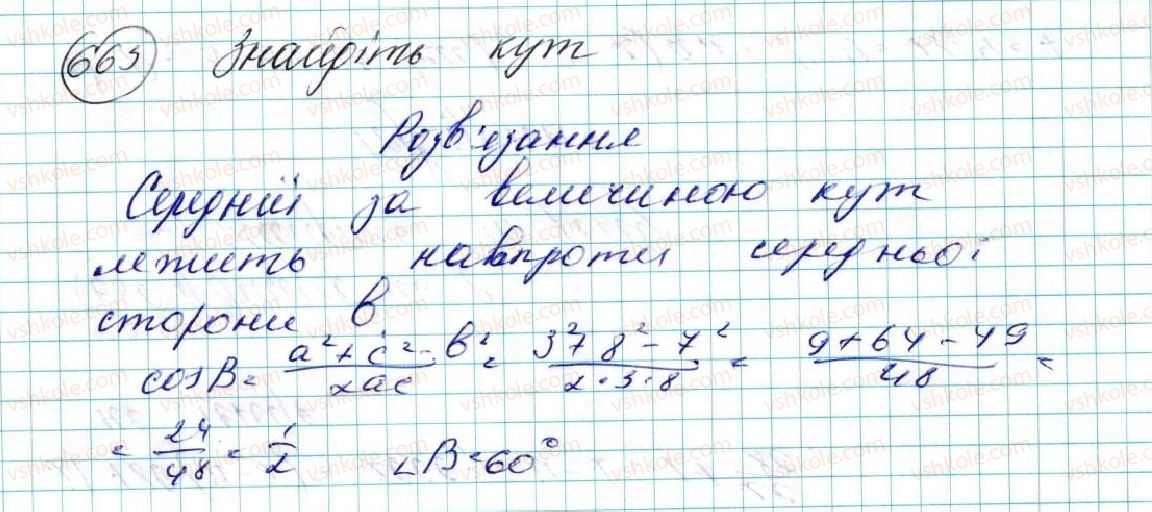 663 Знайдіть кут
Розв'язання
Середній за величиною кут
лежить навпроти середньої
сторони b.
cosB = (a² + c² - b²)/(2ac) = (3² + 8² - 7²)/(2·3·8) = (9 + 64 - 49)/48 =
= 24/48 = 1/2 ∠B = 60°